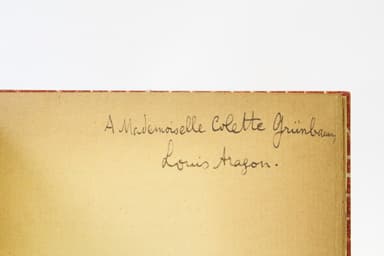 A Mademoiselle Colette Grünbaum,
Louis Aragon.